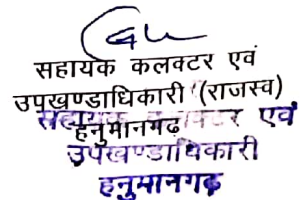 सहायक कलक्टर एवं
उपखण्डाधिकारी (राजस्व)
हनुमानगढ़
सहायक कलक्टर एवं
उपखण्डाधिकारी
हनुमानगढ़